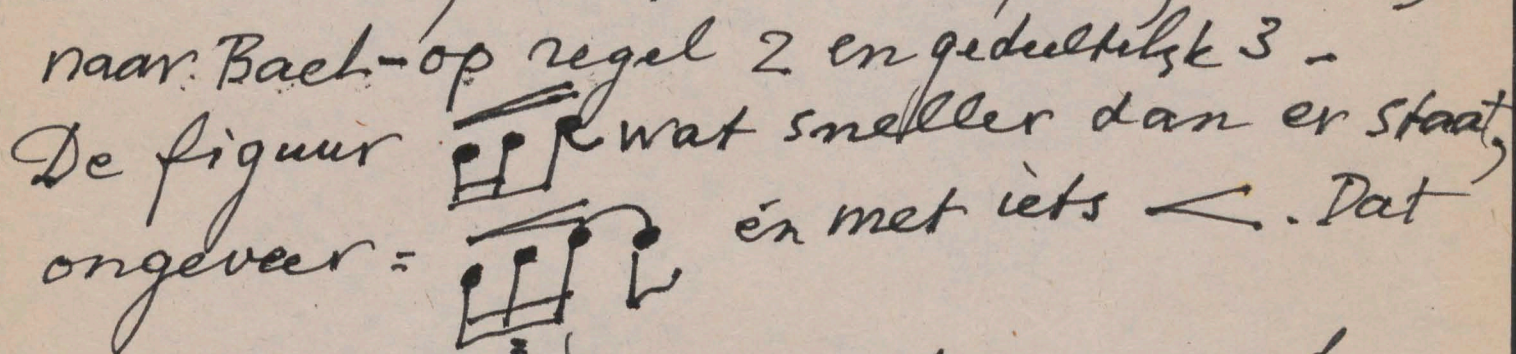 naar Bach - op regel 2 en gedeeltelijk 3 -
De figuur wat sneller dan er staat,
ongeveer = én met iets <. Dat